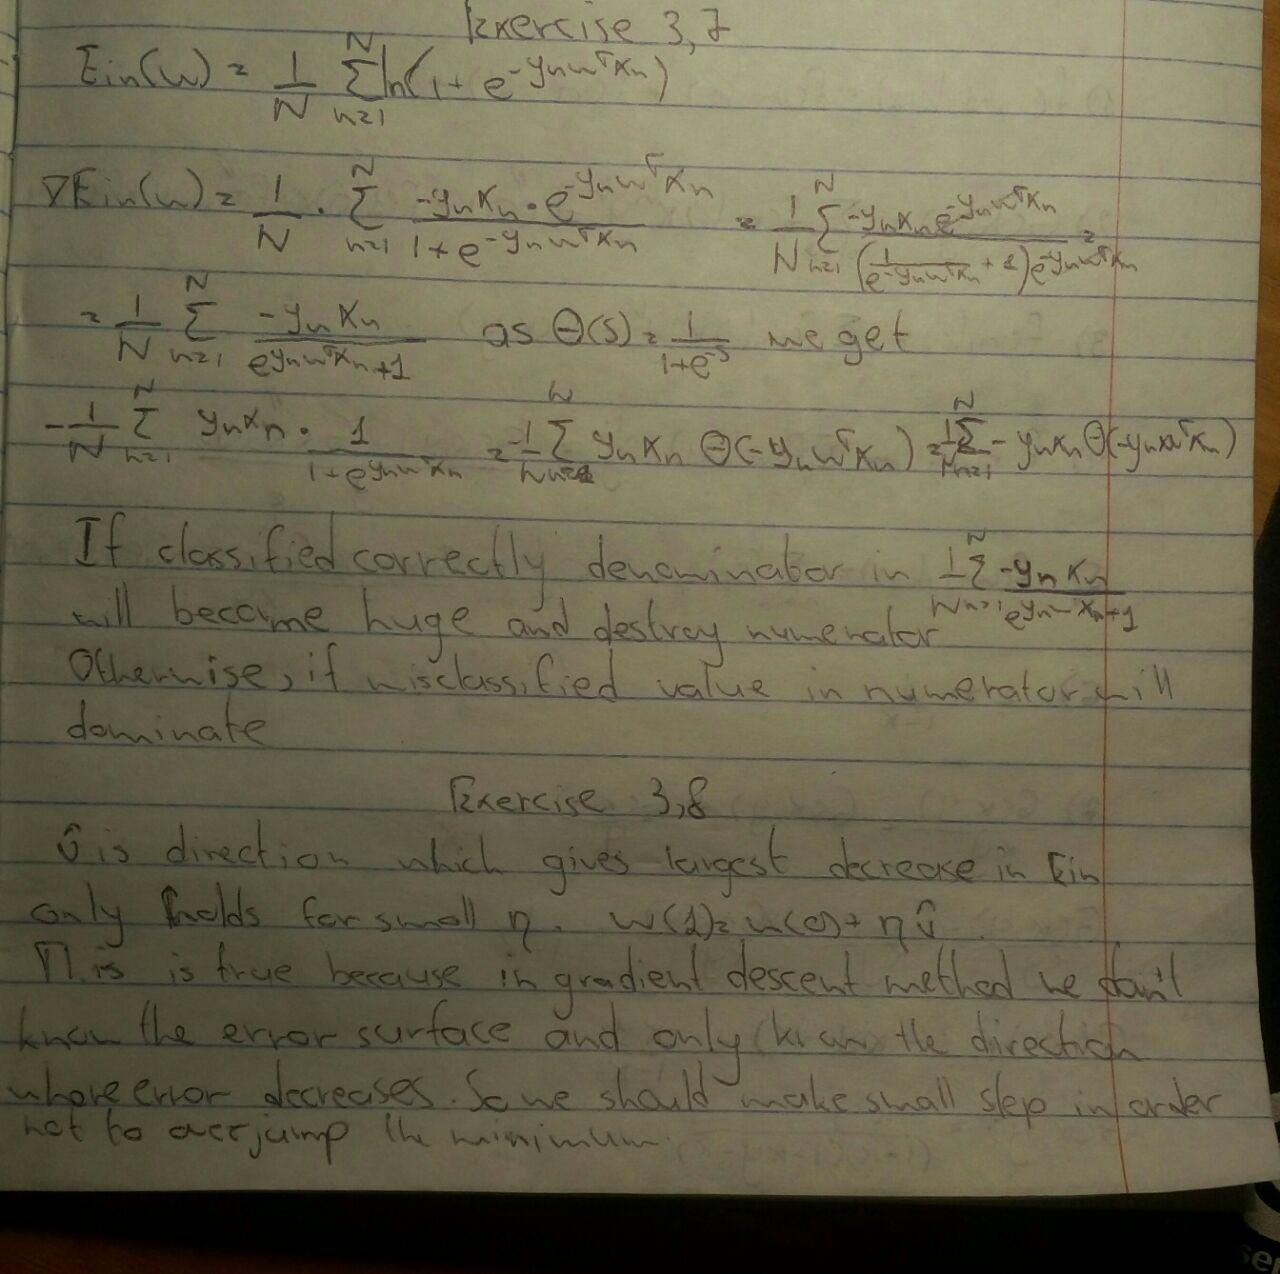 Exercise 3,7
Ein(w) = 1/N Σ_{n=1}^{N} ln(1 + e^{-y_n w^T x_n})
∇Ein(w) = 1/N · Σ_{n=1}^{N} (-y_n x_n · e^{-y_n w^T x_n}) / (1 + e^{-y_n w^T x_n}) = 1/N Σ_{n=1}^{N} (-y_n x_n e^{-y_n w^T x_n}) / ((1/(e^{-y_n w^T x_n}) + 1) e^{-y_n w^T x_n}) =
= 1/N Σ_{n=1}^{N} (-y_n x_n) / (e^{y_n w^T x_n} + 1) as Θ(s) = 1/(1+e^{-s}) we get
-1/N Σ_{n=1}^{N} y_n x_n · 1/(1 + e^{y_n w^T x_n}) = -1/N Σ_{n=1}^{N} y_n x_n Θ(-y_n w^T x_n) = 1/N Σ_{n=1}^{N} - y_n x_n Θ(-y_n w^T x_n)
If classified correctly denominator in 1/N Σ_{n=1}^{N} (-y_n x_n) / (e^{y_n - x_n} + 1)
will become huge and destroy numerator
Otherwise, if misclassified value in numerator will
dominate
Exercise 3,8
v̂ is direction which gives largest decrease in Ein
only holds for small η. w(1) = w(0) + η v̂
This is true because in gradient descent method we don't
know the error surface and only know the direction
where error decreases. So we should make small step in order
not to overjump the minimum.